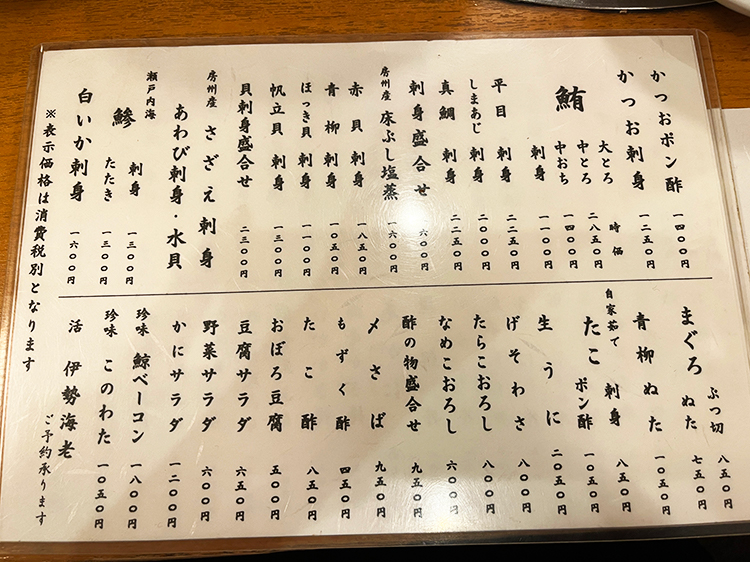 かつおポン酢 一四〇〇円
かつお刺身 一二五〇円
鮪 大とろ 時価
中とろ 二八五〇円
中おち 一四〇〇円
刺身 一一〇〇円
平目 刺身 二二五〇円
しまあじ 刺身 二二〇〇円
真鯛 刺身 二二五〇円
刺身盛合せ
房州産 床ぶし塩蒸 一六〇〇円
赤貝 刺身 一八五〇円
青柳 刺身 一〇五〇円
ほっき貝 刺身 一一〇〇円
帆立貝 刺身 一三〇〇円
貝刺身盛合せ 二三〇〇円
房州産 さざえ刺身
あわび刺身・水貝
瀬戸内海
鰺 刺身 一三〇〇円
たたき 一三〇〇円
白いか刺身 一六〇〇円
※表示価格は消費税別となります
まぐろ ぶつ切 八五〇円
ぬた 七五〇円
青柳ぬた 一〇五〇円
自家茹で たこ 刺身 八五〇円
ポン酢 一〇五〇円
生うに 二〇五〇円
げそわさ 八〇〇円
たらこおろし 八〇〇円
なめこおろし 六〇〇円
酢の物盛合せ 九五〇円
〆さば 九五〇円
もずく酢 四五〇円
たこ酢 八五〇円
おぼろ豆腐 五〇〇円
豆腐サラダ 六五〇円
野菜サラダ 六〇〇円
かにサラダ 一二〇〇円
珍味 鯨ベーコン 一八〇〇円
珍味 このわた 一〇五〇円
活 伊勢海老 ご予約承ります